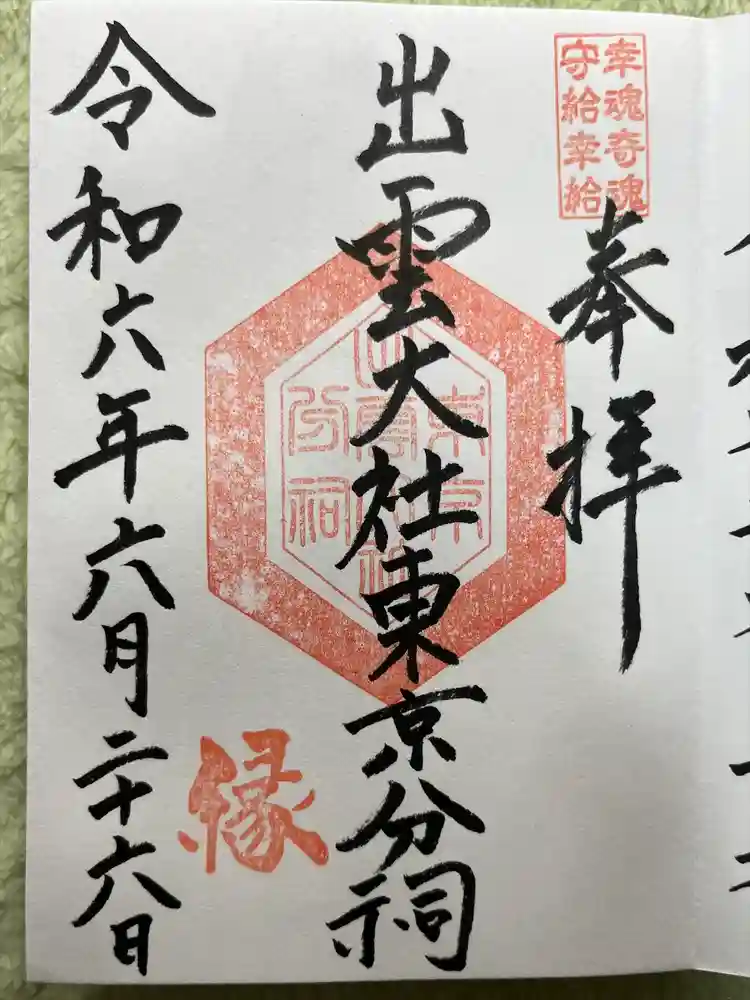 幸魂奇魂
守給幸給
奉拝
出雲大社東京分祠
東京
出雲大社
分祠
縁
令和六年六月二十六日